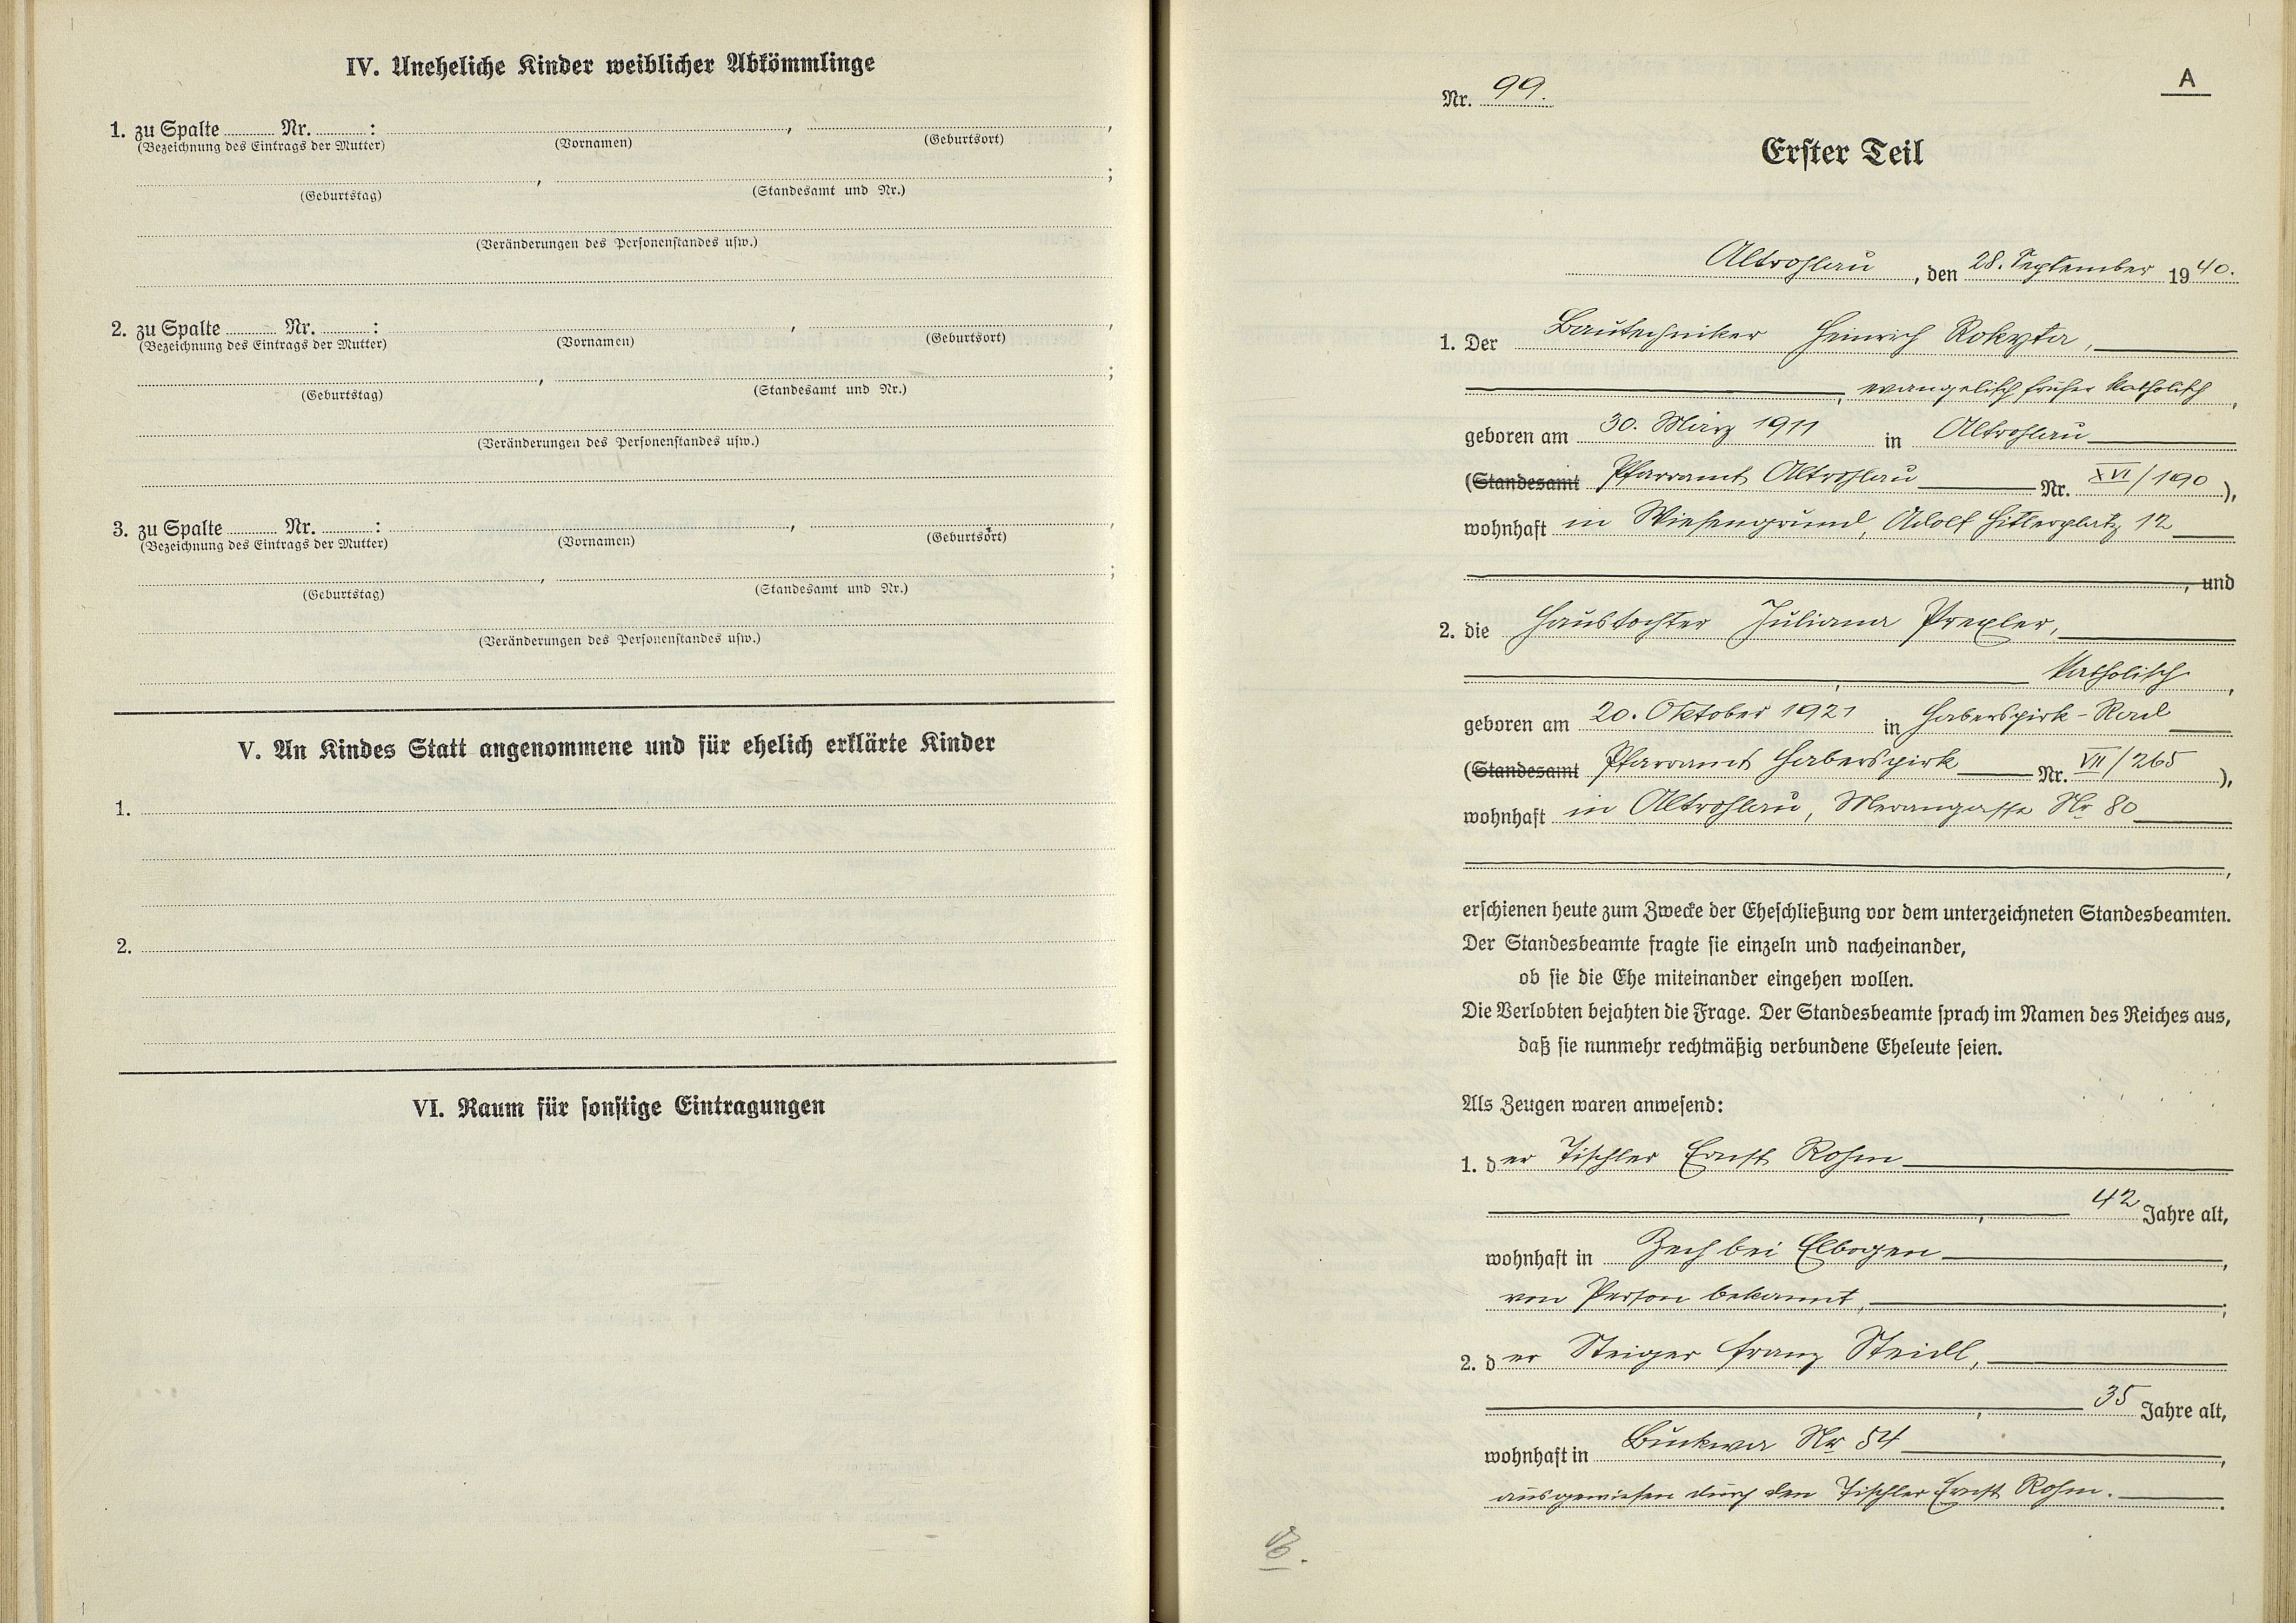 IV. Uneheliche Kinder weiblicher Abkömmlinge
1. zu Spalte ......... Nr. ......... : , ,
(Bezeichnung des Eintrags der Mutter) (Vornamen) (Geburtsort)
, ;
(Geburtstag) (Standesamt und Nr.)
(Veränderungen des Personenstandes usw.)
2. zu Spalte ......... Nr. ......... : , ,
(Bezeichnung des Eintrags der Mutter) (Vornamen) (Geburtsort)
, ;
(Geburtstag) (Standesamt und Nr.)
(Veränderungen des Personenstandes usw.)
3. zu Spalte ......... Nr. ......... : , ,
(Bezeichnung des Eintrags der Mutter) (Vornamen) (Geburtsort)
, ;
(Geburtstag) (Standesamt und Nr.)
(Veränderungen des Personenstandes usw.)
V. An Kindes Statt angenommene und für ehelich erklärte Kinder
1.
2.
VI. Raum für sonstige Eintragungen
A
Nr. 99.
Erster Teil
Altrohlau, den 28. September 1940.
1. Der Bautechniker Heinrich Rokyta,
, evangelisch früher katholisch,
geboren am 30. März 1911 in Altrohlau
(Standesamt Pfarramt Altrohlau Nr. XVI/190),
wohnhaft in Wiesengrund, Adolf Hitlerplatz 12
, und
2. die Haustochter Juliana Prexler,
, katholisch,
geboren am 20. Oktober 1921 in Haberspirk-Rad
(Standesamt Pfarramt Haberspirk Nr. VII/265),
wohnhaft in Altrohlau, Merangasse Nr 80
,
erschienen heute zum Zwecke der Eheschließung vor dem unterzeichneten Standesbeamten.
Der Standesbeamte fragte sie einzeln und nacheinander,
ob sie die Ehe miteinander eingehen wollen.
Die Verlobten bejahten die Frage. Der Standesbeamte sprach im Namen des Reiches aus,
daß sie nunmehr rechtmäßig verbundene Eheleute seien.
Als Zeugen waren anwesend:
1. der Tischler Ernst Rohm
, 42 Jahre alt,
wohnhaft in Zech bei Elbogen,
von Person bekannt, ;
2. der Steiger Franz Steidl,
, 35 Jahre alt,
wohnhaft in Buckwa Nr 54,
ausgewiesen durch den Tischler Ernst Rohm.